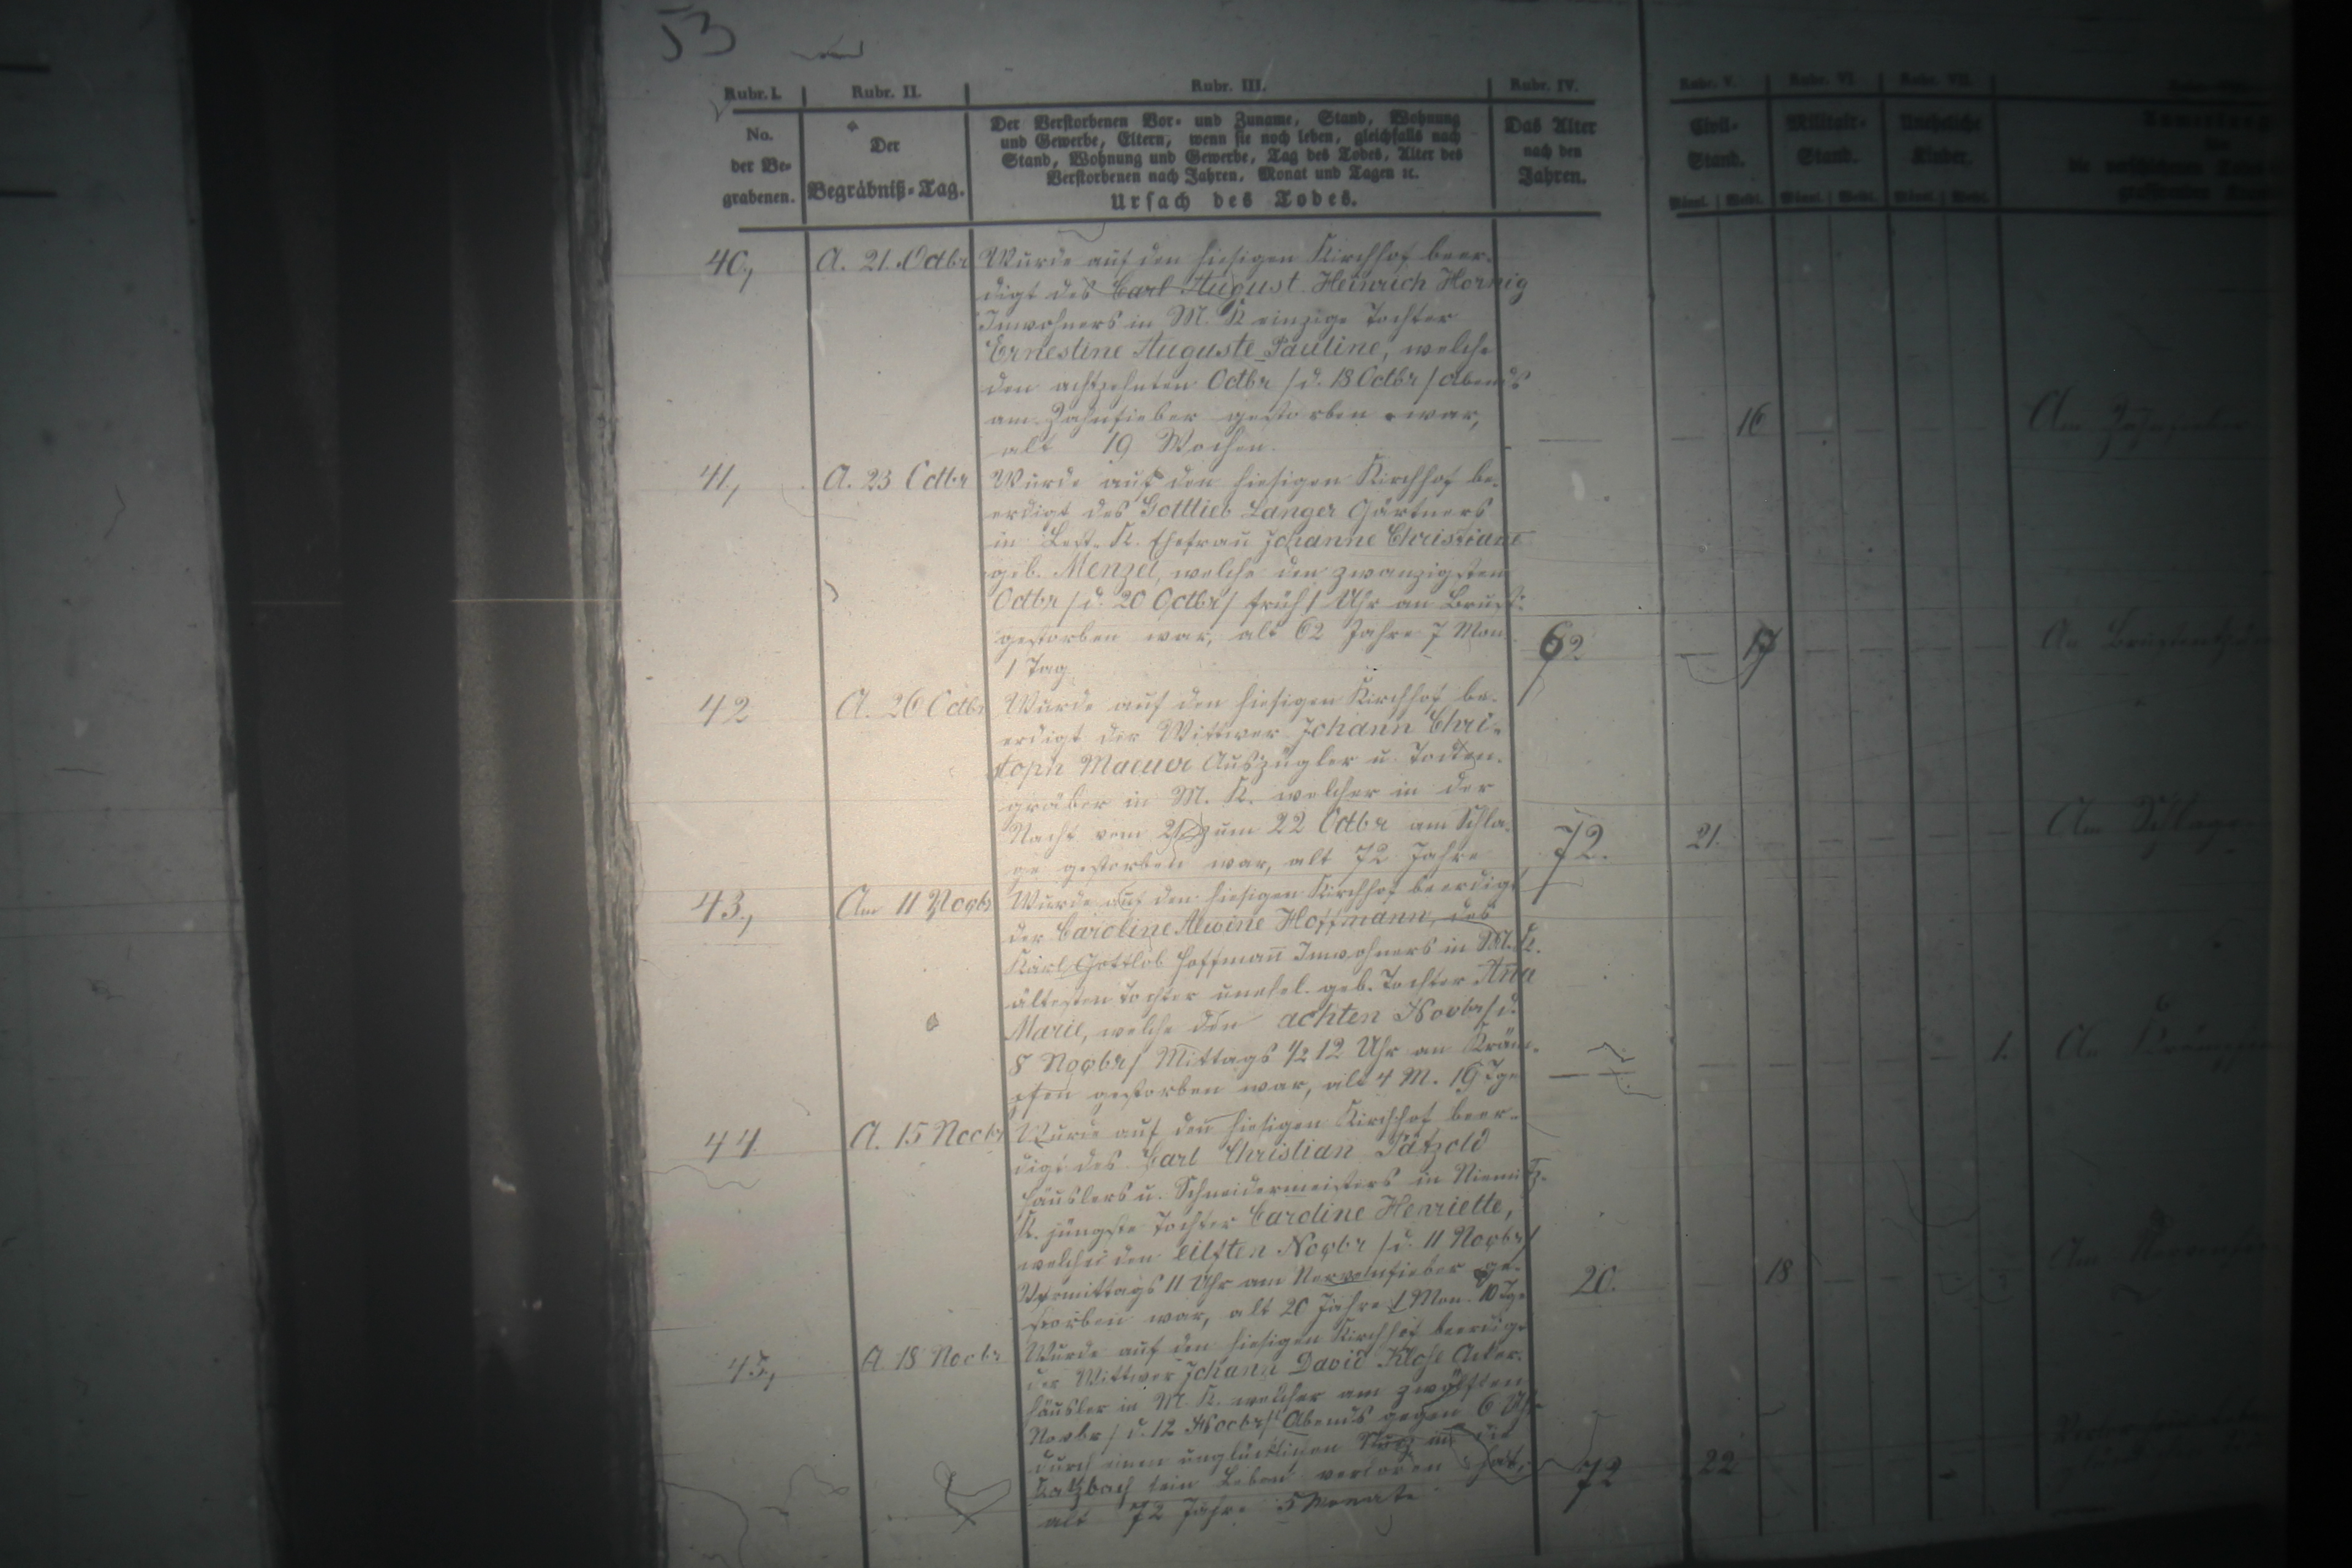 53
Rubr. I. Rubr. II. Rubr. III. Rubr. IV. Rubr. V. Rubr. VI. Rubr. VII.
No.
der Be-
grabenen.
Der
Begräbniß-Tag.
Der Verstorbenen Vor- und Zuname, Stand, Wohnung
und Gewerbe, Eltern, wenn sie noch leben, gleichfalls nach
Stand, Wohnung und Gewerbe, Tag des Todes, Alter des
Verstorbenen nach Jahren, Monat und Tagen ꝛc.
Ursach des Todes.
Das Alter
nach den
Jahren.
Civil-
Stand.
Militair-
Stand.
Uneheliche
Kinder.
Männl. Weibl. Männl. Weibl. Männl. Weibl.
40, A. 21. Octbr Wurde auf den hiesigen Kirchhof beer-
digt des Carl August Heinrich Hornig
Inwohners in M. K einzige Tochter
Ernestine Auguste Pauline, welche
den achtzehnten Octbr /d. 18 Octbr/ Abends
am Zahnfieber gestorben war,
alt 19 Wochen. — — 16 Am Zahnfieber
41, A. 23 Octbr Wurde auf den hiesigen Kirchhof be-
erdigt des Gottlieb Langer Gärtners
in K. Ehefrau Johanne Christiane
geb. Menzel, welche den zwanzigsten
Octbr /d. 20 Octbr/ früh 1 Uhr an Brust-
gestorben war, alt 62 Jahre 7 Mon 62 — 17
1 Tag
42 A. 26 Octbr Wurde auf den hiesigen Kirchhof be-
erdigt der Wittwer Johann Chri-
stoph Auszügler u. Todten-
gräber in M. K. welcher in der
Nacht vom 21 zum 22 Octbr am Schla-
ge gestorben war, alt 72 Jahre 72. 21. Am Schlage
43, Am 11 Novbr Wurde auf den hiesigen Kirchhof beerdigt
der Caroline Alwine Hoffmann, des
Karl Gottlob Hoffmann Inwohners in M. K.
ältesten Tochter unehel. geb. Tochter Anna
Marie, welche den achten Novbr /d.
8 Novbr/ Mittags 1/2 12 Uhr an Kräm-
pfen gestorben war, alt 4 M. 19 Tge — 1. An Krämpfen
44 A. 15 Novbr Wurde auf den hiesigen Kirchhof beer-
digt des Carl Christian Pätzold
Häuslers u. Schneidermeisters in Niemitz-
K. jüngste Tochter Caroline Henriette,
welche den eilften Novbr /d. 11 Novbr/
Vormittags 11 Uhr am Nervenfieber ge-
storben war, alt 20 Jahre 1 Mon. 10 Tge 20. — 18 Am Nervenfieber
45, A. 18 Novbr Wurde auf den hiesigen Kirchhof beerdigt
der Wittwer Johann David Klose Acker-
häusler in M. K. welcher am zwölften
Novbr /d. 12 Novbr/ Abends gegen 6 Uhr
durch einen unglücklichen Sturz in die
Katzbach sein Leben verloren hat,
alt 72 Jahre 5 Monate 72 22